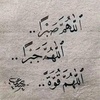 اللَّهُمَّ صَبْرًا..
اللَّهُمَّ جَبْرًا..
اللَّهُمَّ قُوَّة..